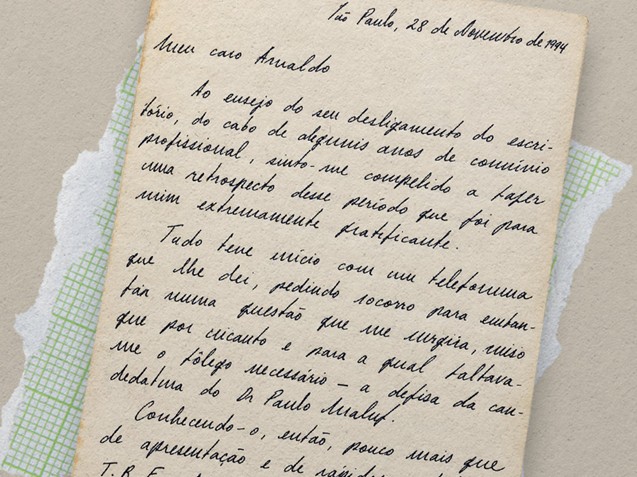 São Paulo, 28 de Novembro de 1994
Meu caro Arnaldo
Ao ensejo do seu desligamento do escri-
tório, do cabo de alguns anos de convínio
profissional, sinto-me compelido a fazer
uma retrospecto desse período que foi para
mim extremamente gratificante.
Tudo teve início com um telefonema
que lhe dei, pedindo socorro para
numa questão que me
que por encanto e para a qual faltava-
me o fôlego necessário – a defesa da can-
didatura do Dr Paulo Maluf.
Conhecendo-o, então, pouco mais que
de apresentação e de
T. R. E.